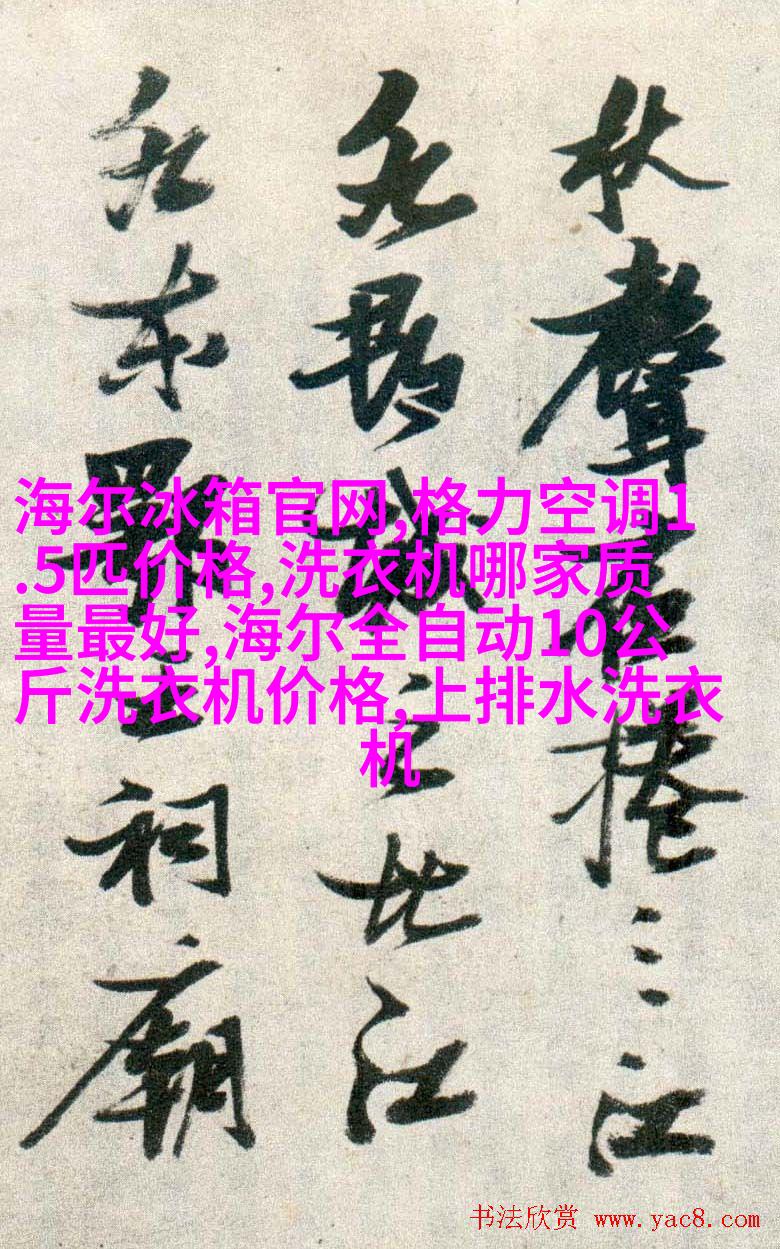 秋聲捲三江
之北江
東祠廟
海尔冰箱官网,格力空调1
.5匹价格,洗衣机哪家质
量最好,海尔全自动10公
斤洗衣机价格,上排水洗衣
机
书法欣赏 www.yac8.com